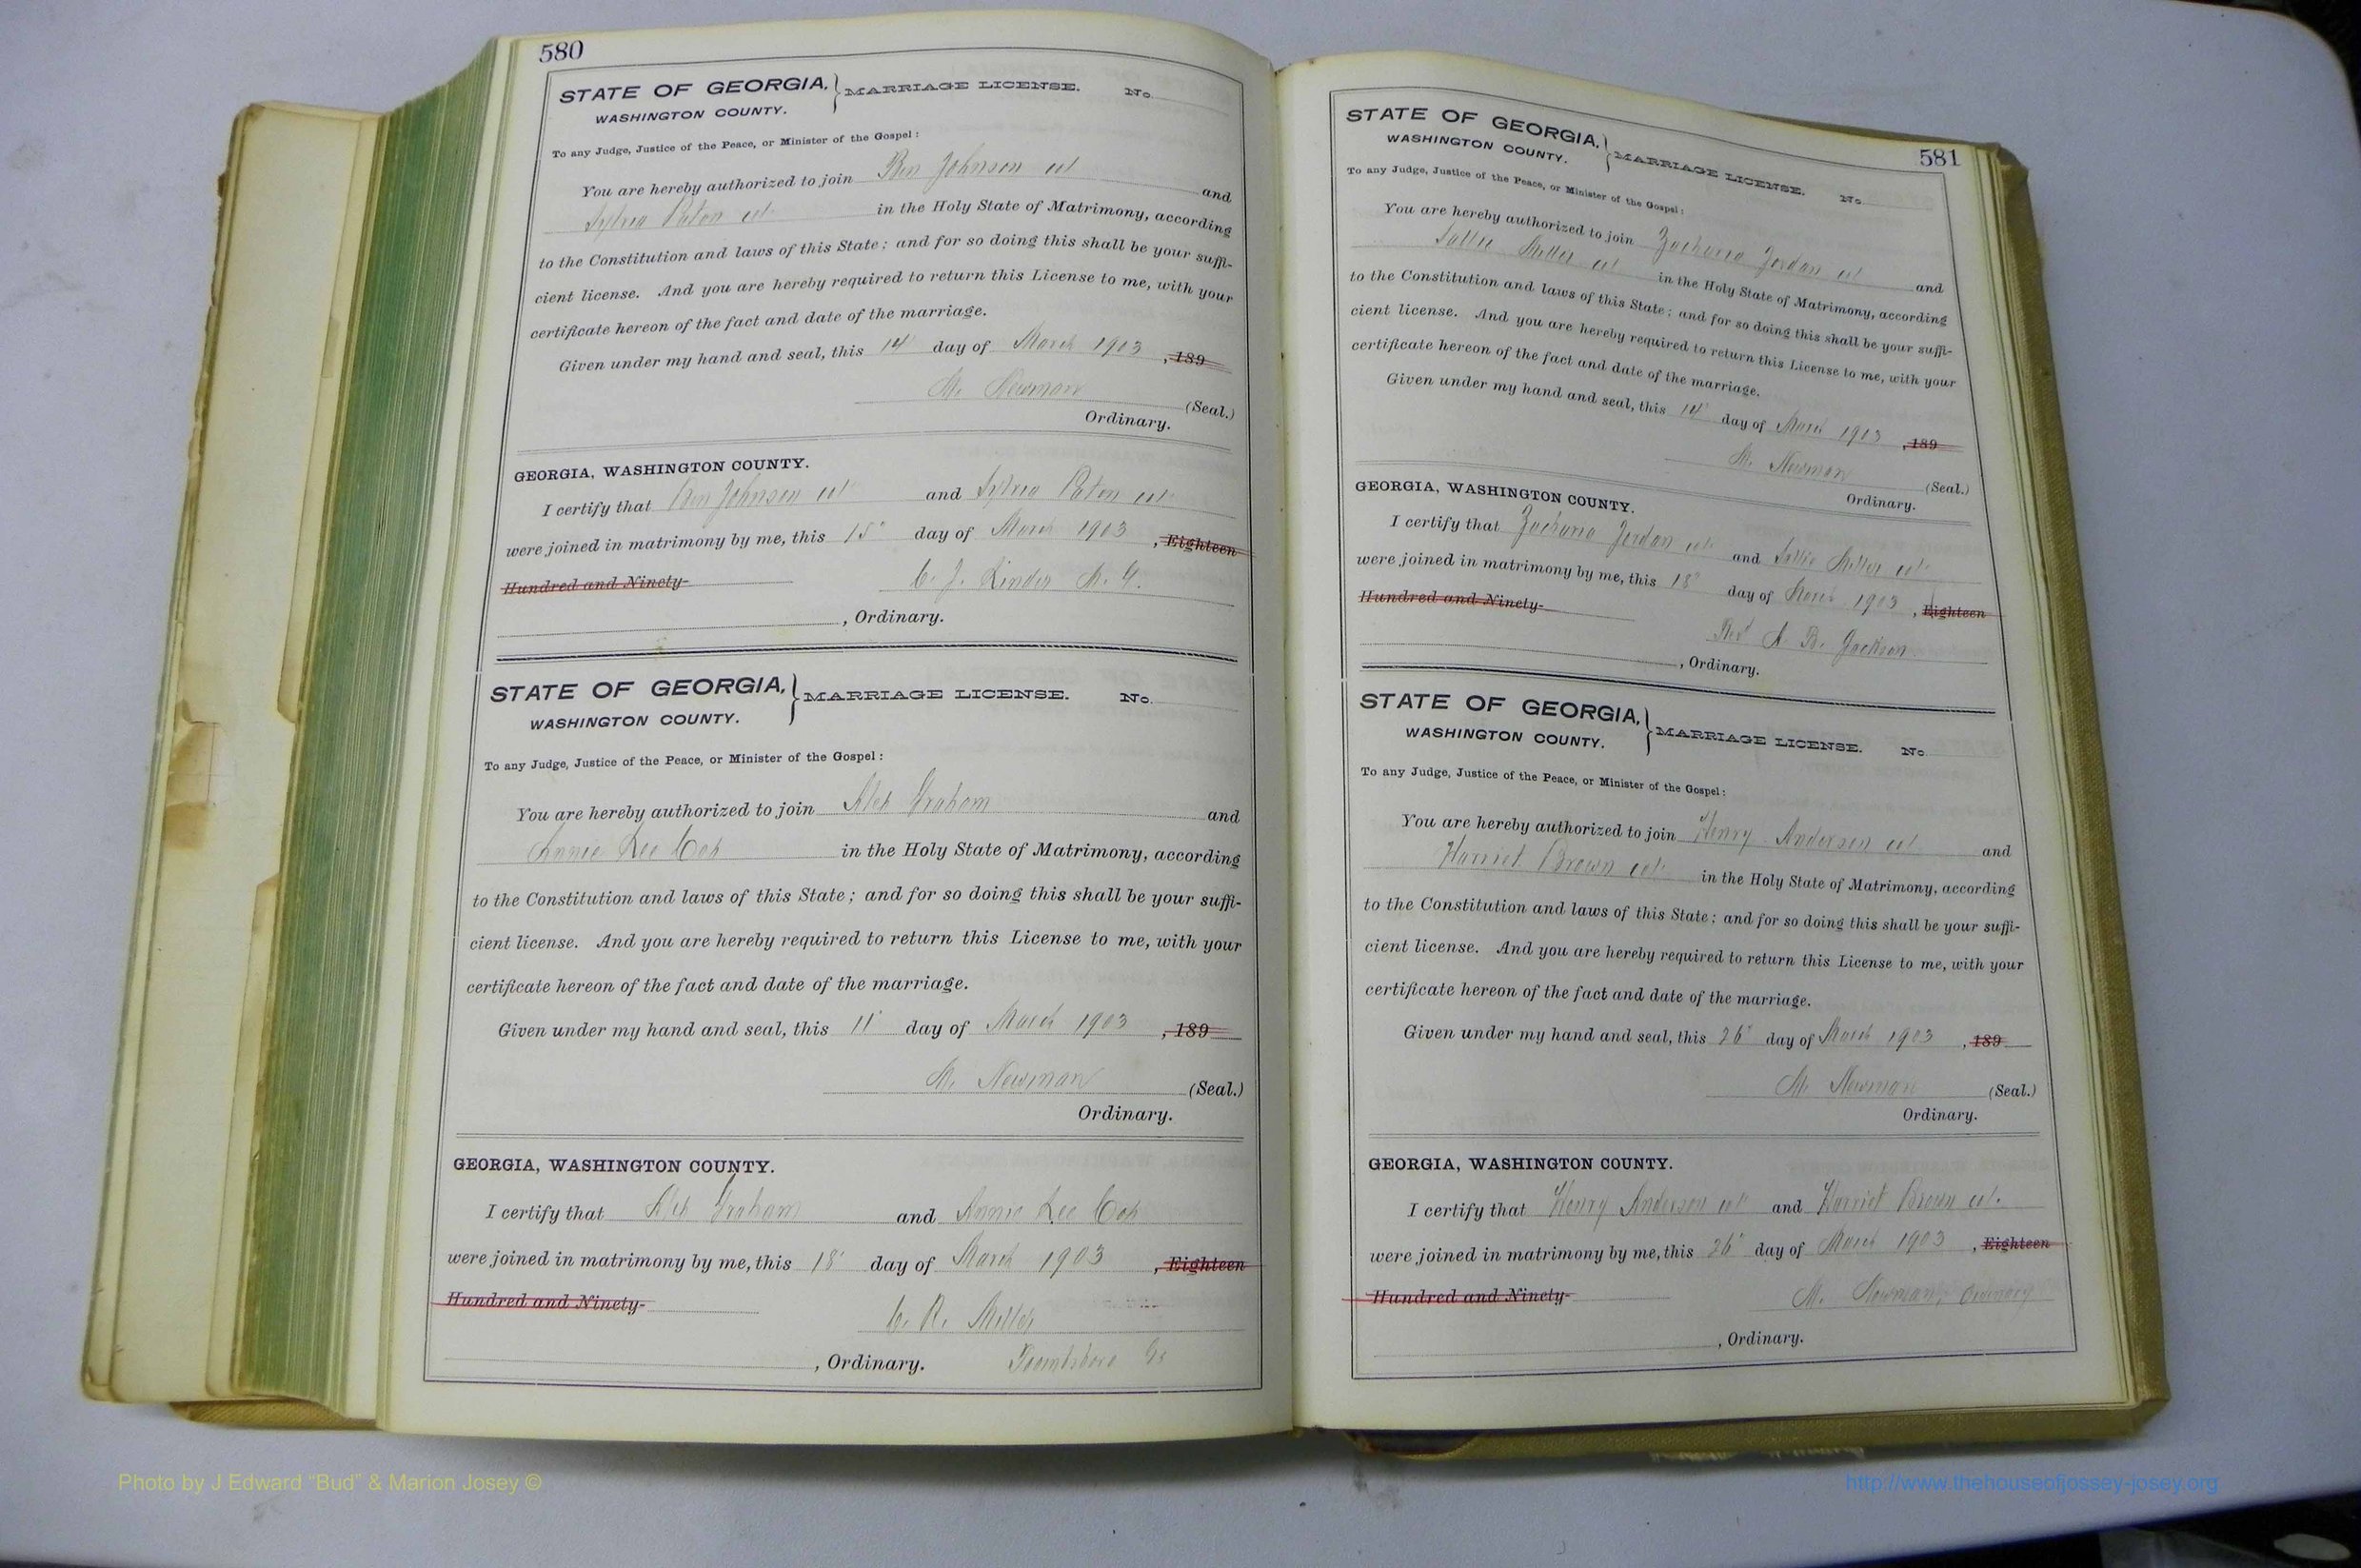 580
STATE OF GEORGIA, MARRIAGE LICENSE. No.
WASHINGTON COUNTY.
To any Judge, Justice of the Peace, or Minister of the Gospel:
You are hereby authorized to join Ben Johnson col and
Sylvia Paton col in the Holy State of Matrimony, according
to the Constitution and laws of this State; and for so doing this shall be your suffi-
cient license. And you are hereby required to return this License to me, with your
certificate hereon of the fact and date of the marriage.
Given under my hand and seal, this 14" day of March 1903, 189
M. Newman (Seal.)
Ordinary.
GEORGIA, WASHINGTON COUNTY.
I certify that Ben Johnson col and Sylvia Paton col
were joined in matrimony by me, this 15" day of March 1903, Eighteen
Hundred and Ninety- C. J. Linder M. G.
, Ordinary.
STATE OF GEORGIA, MARRIAGE LICENSE. No.
WASHINGTON COUNTY.
To any Judge, Justice of the Peace, or Minister of the Gospel:
You are hereby authorized to join Alex Graham and
Annie Lee Cox in the Holy State of Matrimony, according
to the Constitution and laws of this State; and for so doing this shall be your suffi-
cient license. And you are hereby required to return this License to me, with your
certificate hereon of the fact and date of the marriage.
Given under my hand and seal, this 11" day of March 1903, 189
M. Newman (Seal.)
Ordinary.
GEORGIA, WASHINGTON COUNTY.
I certify that Alex Graham and Annie Lee Cox
were joined in matrimony by me, this 18" day of March 1903, Eighteen
Hundred and Ninety- C. R. Miller
, Ordinary. Toombsboro Ga
581
STATE OF GEORGIA, MARRIAGE LICENSE. No.
WASHINGTON COUNTY.
To any Judge, Justice of the Peace, or Minister of the Gospel:
You are hereby authorized to join Zacharia Jordan col and
Sallie Miller col in the Holy State of Matrimony, according
to the Constitution and laws of this State; and for so doing this shall be your suffi-
cient license. And you are hereby required to return this License to me, with your
certificate hereon of the fact and date of the marriage.
Given under my hand and seal, this 14" day of March 1903, 189
M. Newman (Seal.)
Ordinary.
GEORGIA, WASHINGTON COUNTY.
I certify that Zacharia Jordan col and Sallie Miller col
were joined in matrimony by me, this 18" day of March 1903, Eighteen
Hundred and Ninety- Rev A. B. Jackson
, Ordinary.
STATE OF GEORGIA, MARRIAGE LICENSE. No.
WASHINGTON COUNTY.
To any Judge, Justice of the Peace, or Minister of the Gospel:
You are hereby authorized to join Henry Anderson col and
Harriet Brown col in the Holy State of Matrimony, according
to the Constitution and laws of this State; and for so doing this shall be your suffi-
cient license. And you are hereby required to return this License to me, with your
certificate hereon of the fact and date of the marriage.
Given under my hand and seal, this 26" day of March 1903, 189
M. Newman (Seal.)
Ordinary.
GEORGIA, WASHINGTON COUNTY.
I certify that Henry Anderson col and Harriet Brown col.
were joined in matrimony by me, this 26" day of March 1903, Eighteen
Hundred and Ninety- M. Newman, Ordinary
, Ordinary.
Photo by J Edward "Bud" & Marion Josey ©
http://www.thehouseofjossey-josey.org